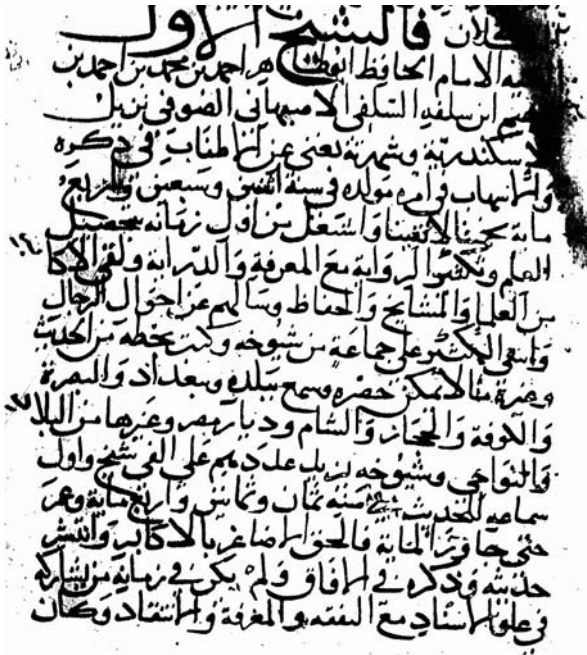 فلان فالشيخ الاول
الامام الحافظ ابو طاهر احمد بن محمد بن احمد بن
ابن سلفه السلفى الاصبهانى الصوفى نزيل
الاسكندرية وشهرته تغنى عن الاطناب فى ذكره
والاسهاب فى امره مولده فى سنة اثنتين وسبعين واربع
ماية تخمينا لا يقينا واشتغل من اول زمانه بتحصيل
العلم وتكثير الرواية مع المعرفة والدراية ولقى الاكابر
من العلما والمشايخ والحفاظ وسالهم عن احوال الرجال
وانتقى الكثير على جماعة من شيوخه وكتب بخطه من الحديث
وغيره ما لا يمكن حصره وسمع ببلده وببغداد والبصرة
والكوفة والحجاز والشام وديار مصر وغيرها من البلاد
والنواحى وشيوخه يزيد عددهم على الفى شيخ واول
سماعه للحديث فى سنة ثمان وثمانين واربع ماية وعمر
حتى جاوز الماية فالحق الاصاغر بالاكابر وانتشر
حديثه وذكره فى الافاق ولم يكن فى زمانه من يشاركه
فى علو الاسناد مع الثقه والمعرفة والانتقاد وكان